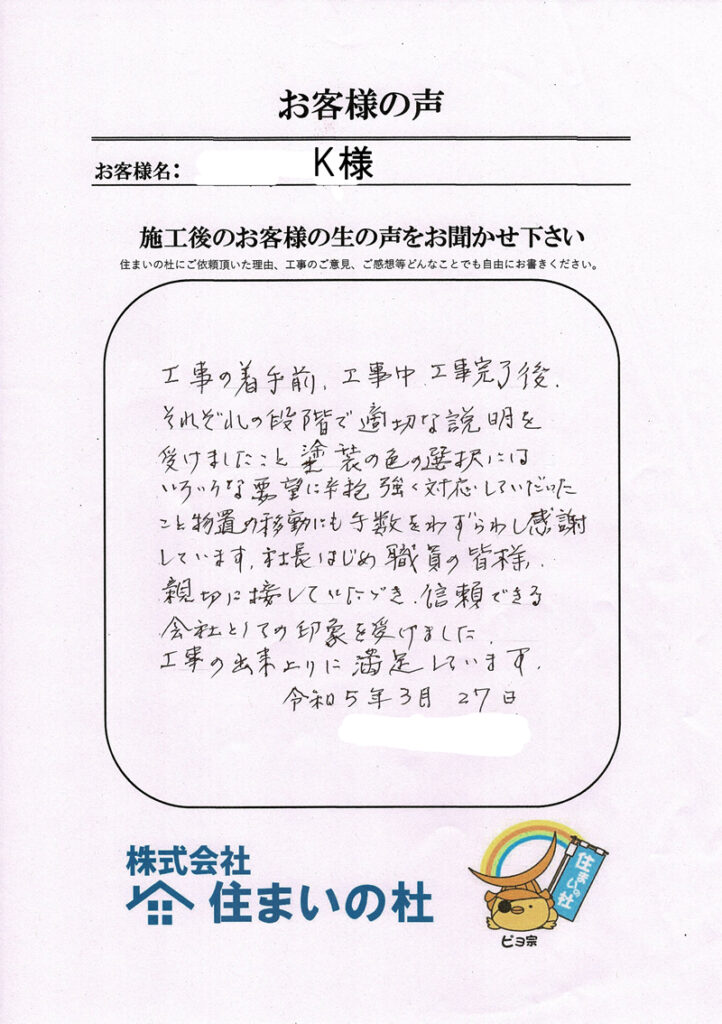 お客様の声
お客様名: K様
施工後のお客様の生の声をお聞かせ下さい
住まいの杜にご依頼頂いた理由、工事のご意見、ご感想等どんなことでも自由にお書きください。
工事の着手前、工事中、工事完了後、
それぞれの段階で適切な説明を
受けましたこと塗装の色の選択には
いろいろな要望に辛抱強く対応していただいた
こと物置の移動にも手数をわずらわし感謝
しています。社長はじめ職員の皆様、
親切に接していただき、信頼できる
会社としての印象を受けました。
工事の出来上りに満足しています。
令和5年3月27日
株式会社
住まいの杜
住まいの杜
ピヨ宗